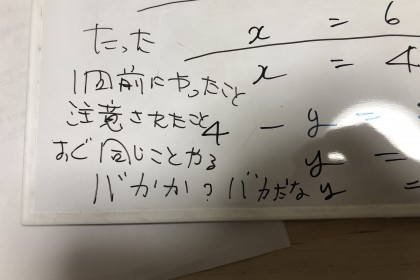 たった
1回前にやったこと
注意されたこと
すぐ同じことやる
バカか?バカだな
x = 6
x = 4
4 - y =
y =
y =